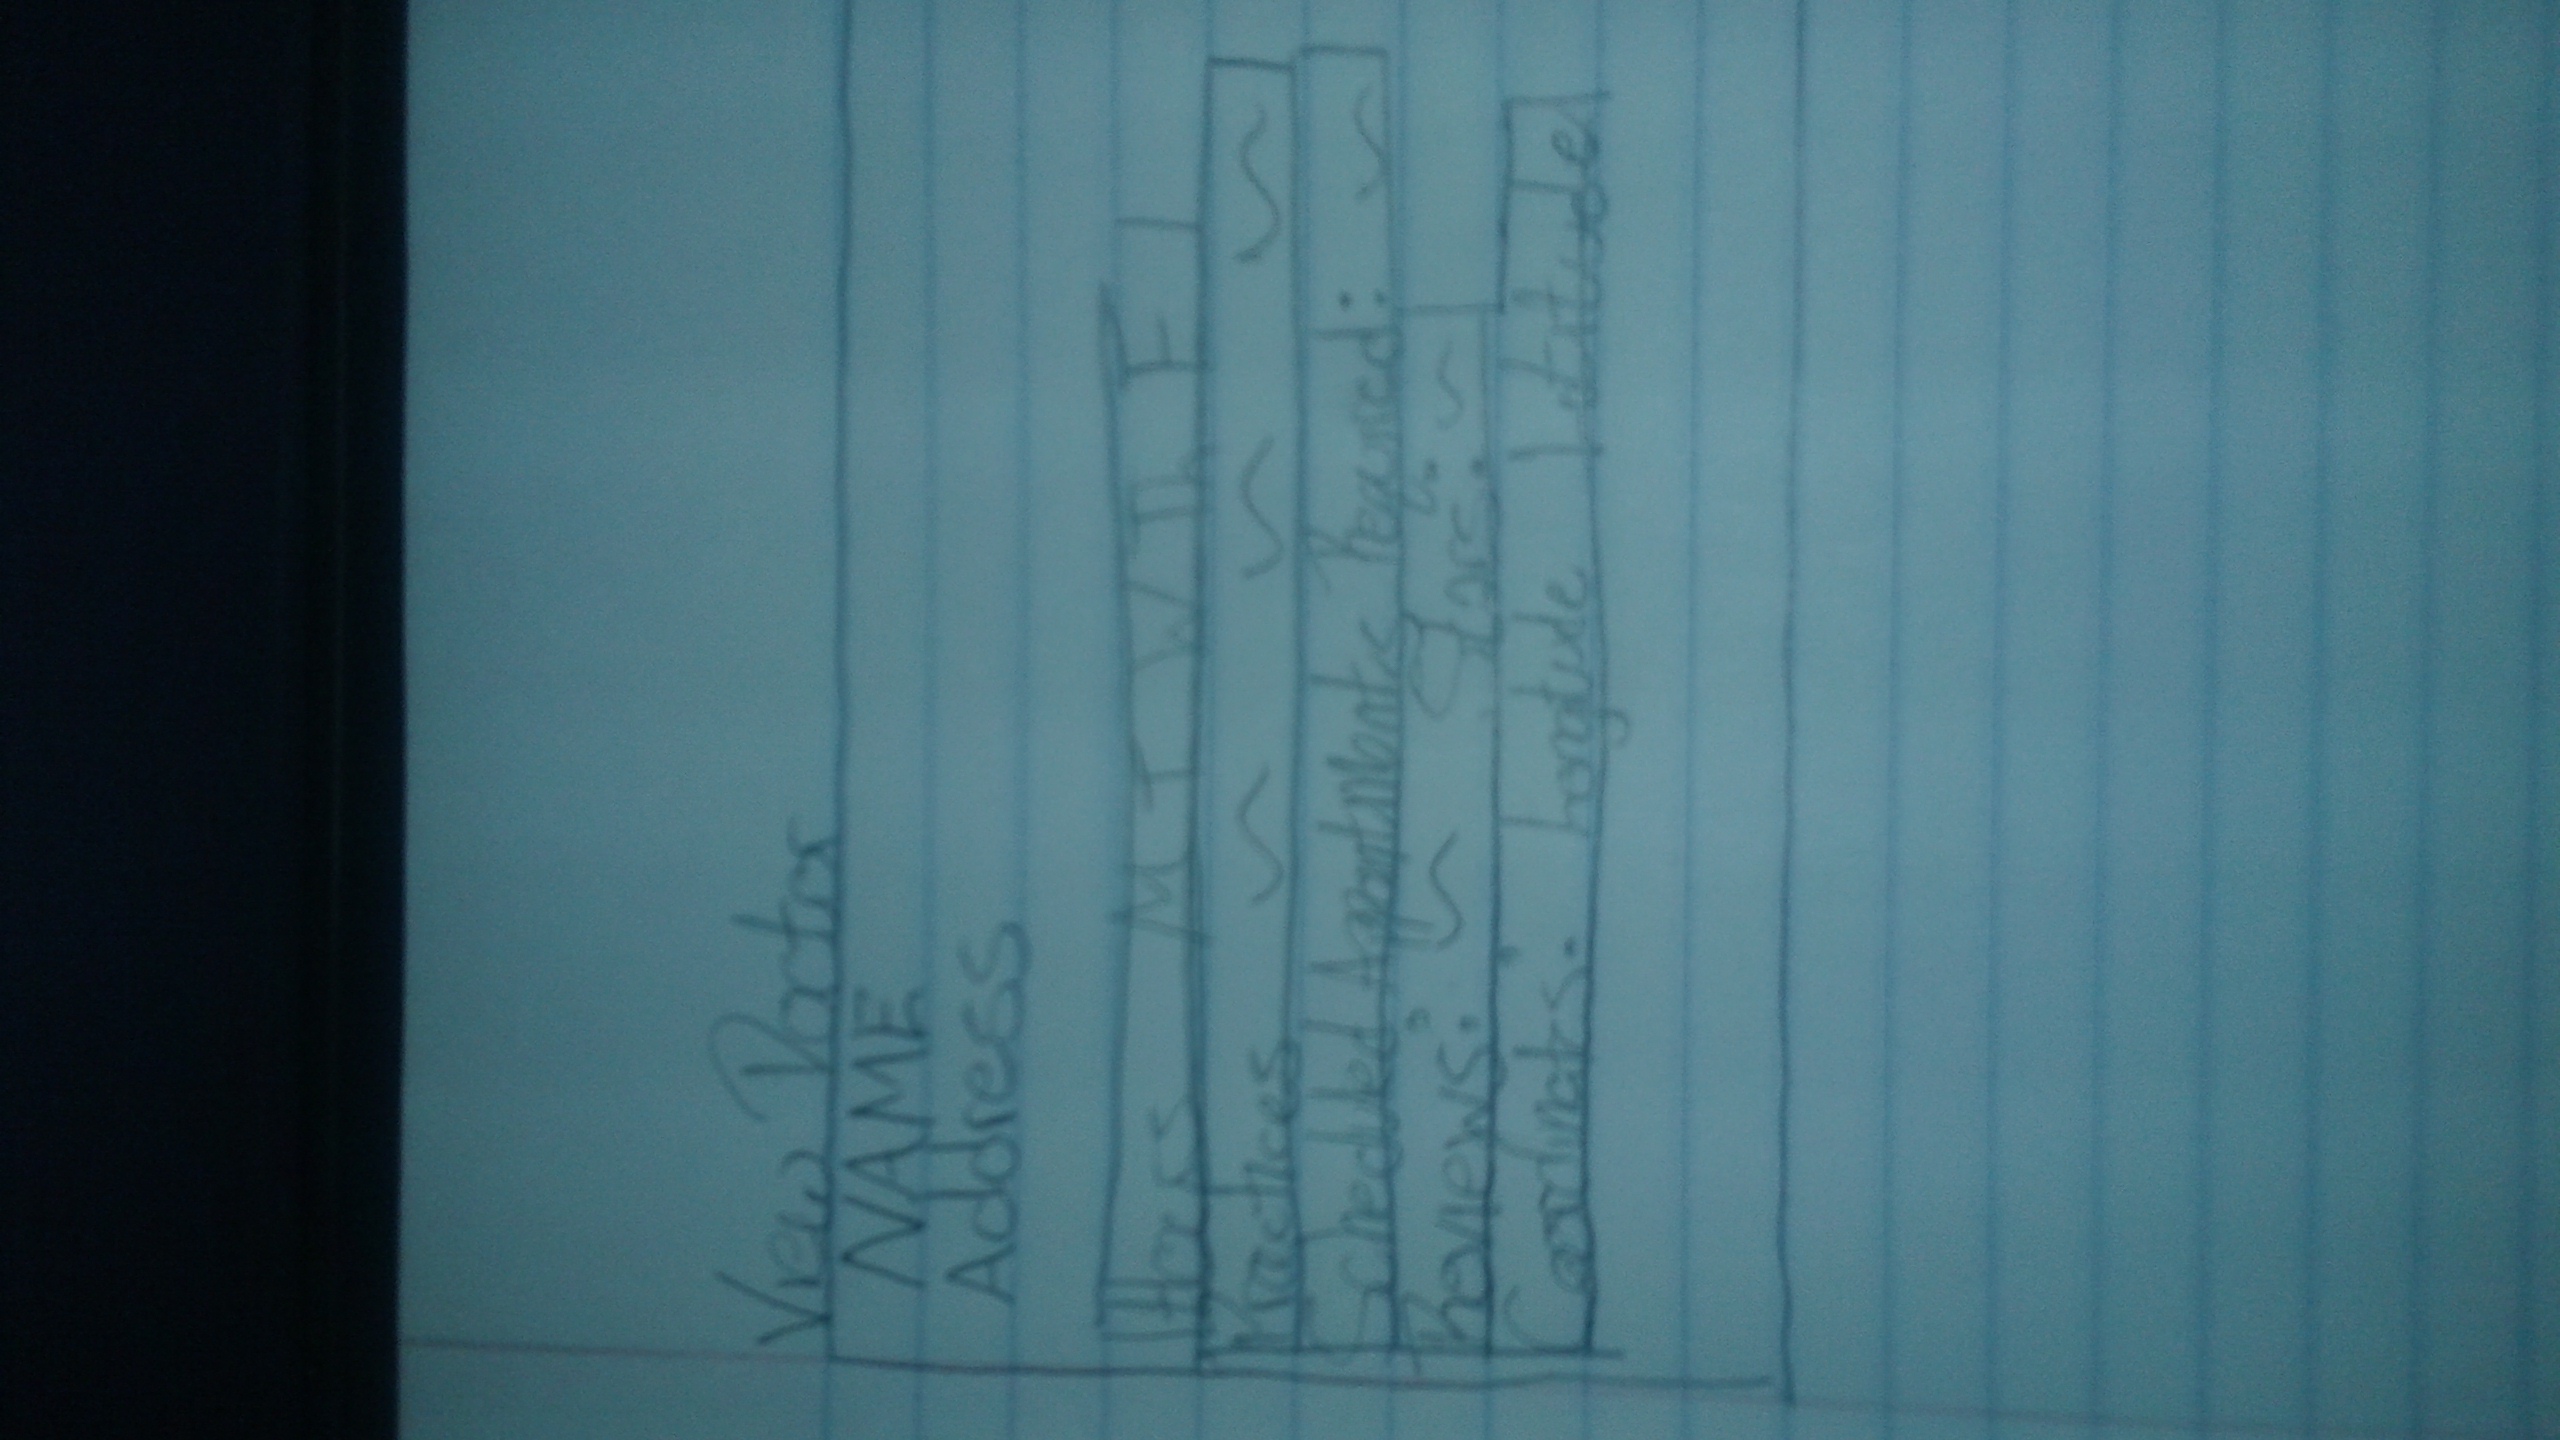 View Doctor
NAME
Address
Hours M T W Th F
Practices
Scheduled Appointments Required:
Reviews: Stars:
Coordinates: Longitude Latitude